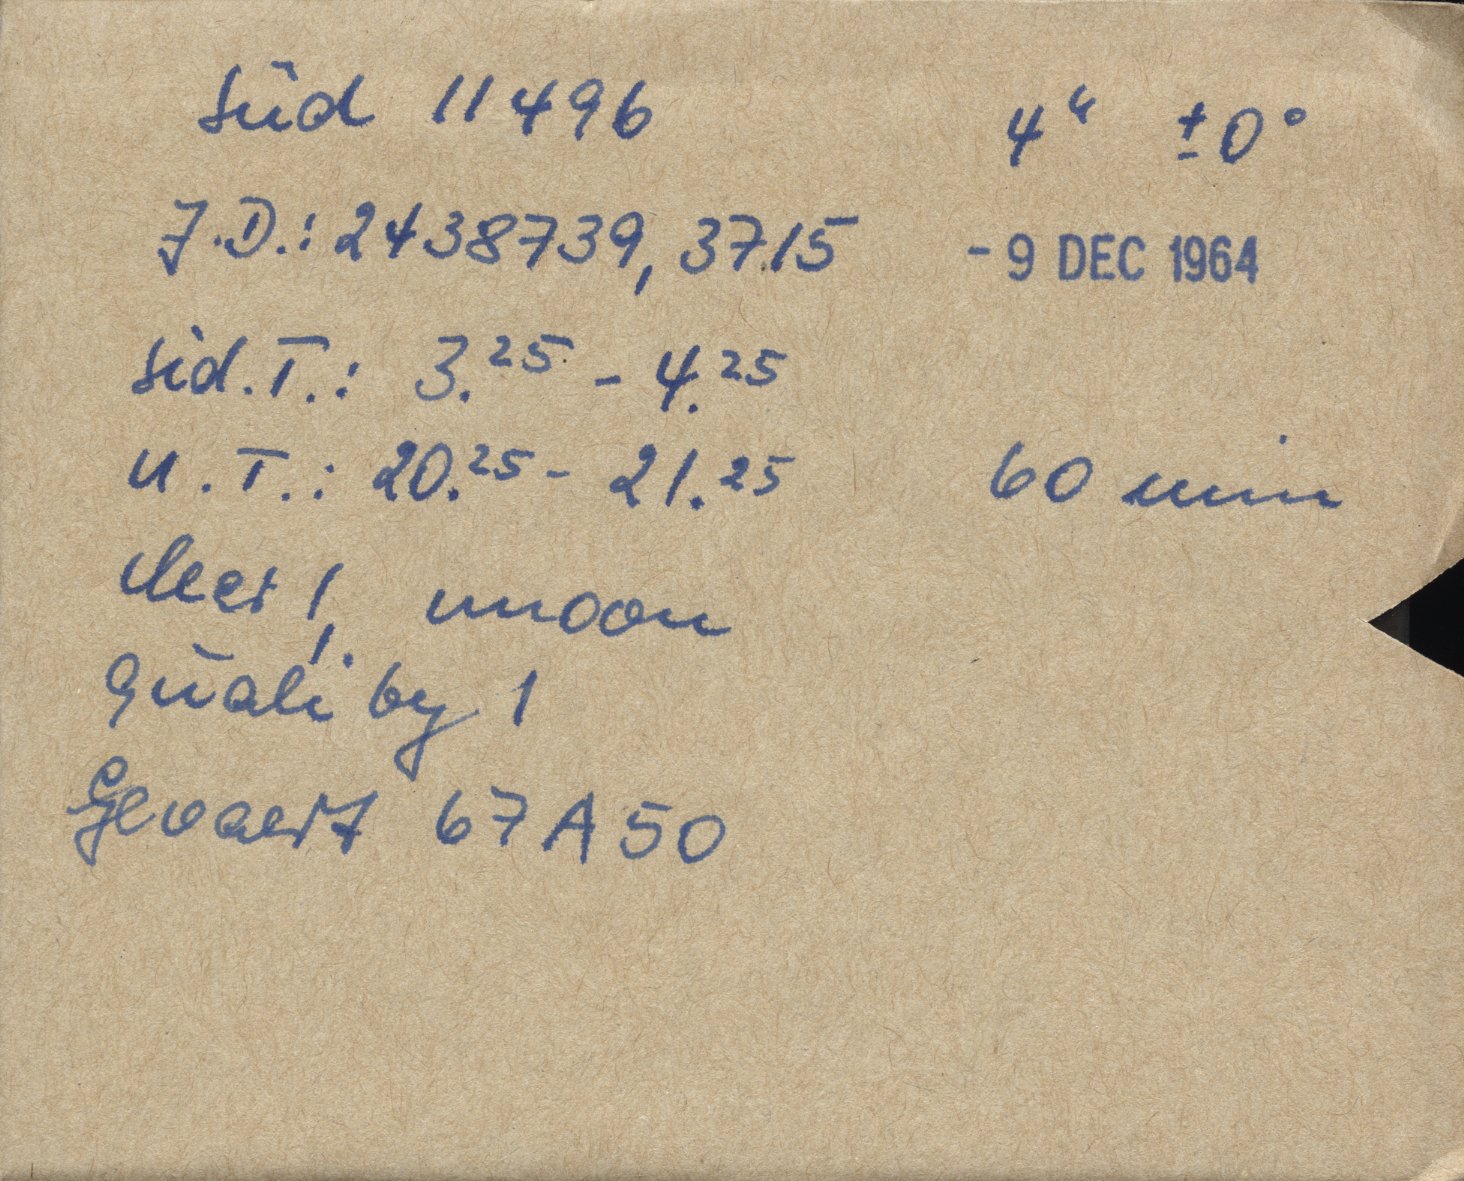 Süd 11496 4h ±0°
J.D.: 2438739,3715 -9 DEC 1964
Sid.T.: 3.25 - 4.25
U.T.: 20.25 - 21.25 60 min
clear!, moon
quality 1
Gevaert 67A50